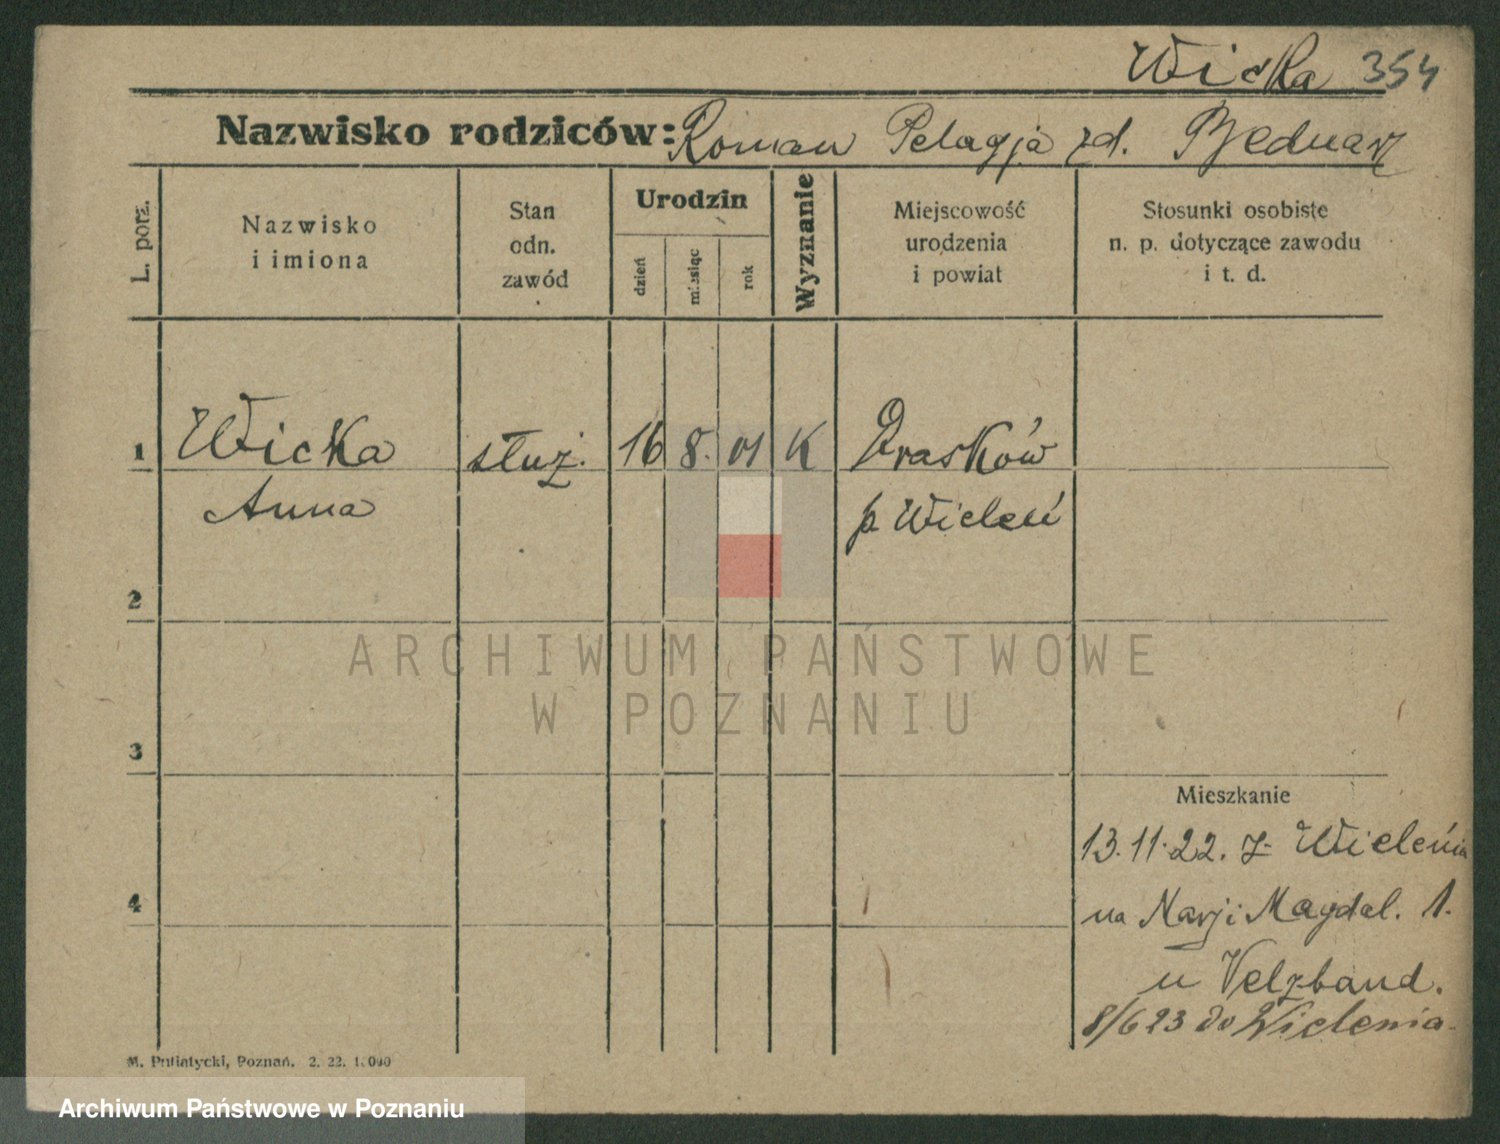 Wicka 354
Nazwisko rodziców: Roman Pelagja zd. Bednarz
L. porz.
Nazwisko
i imiona
Stan
odn.
zawód
Urodzin
dzień
miesiąc
rok
Wyznanie
Miejscowość
urodzenia
i powiat
Stosunki osobiste
n. p. dotyczące zawodu
i t. d.
1 Wicka służ. 16 8. 01 K Drasków
Anna p Wieleń
2
ARCHIWUM PAŃSTWOWE
W POZNANIU
3
Mieszkanie
13.11.22. z Wielenia
4
na Marji Magdal. 1.
u Velzband.
8/6 23 do Wielenia
M. Putiatycki, Poznań. 2. 22. 1.000
Archiwum Państwowe w Poznaniu